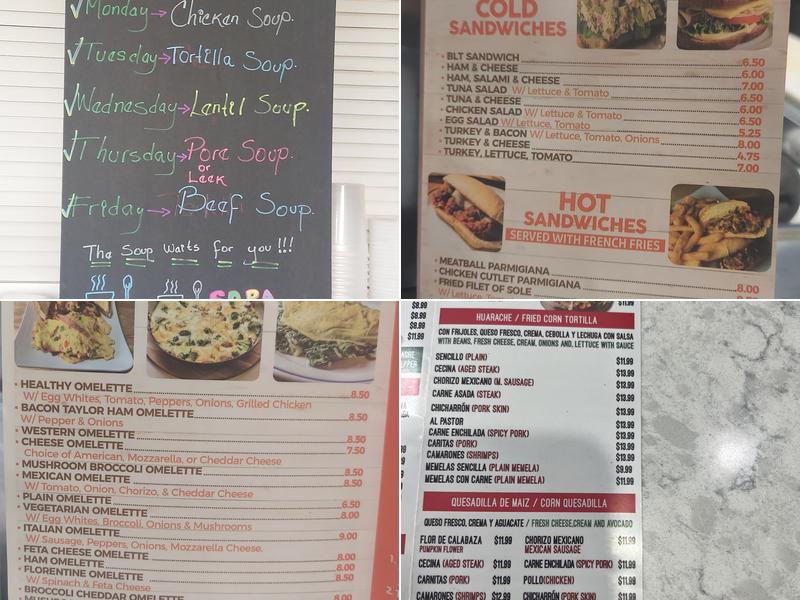 ✓Monday → Chicken Soup.
✓Tuesday → Tortilla Soup.
✓Wednesday → Lentil Soup.
✓Thursday → Pora Soup.
or
Leek
✓Friday → Beef Soup.
The Soup waits for you!!!
SOPA
COLD
SANDWICHES
BLT SANDWICH 6.50
HAM & CHEESE 6.00
HAM, SALAMI & CHEESE 7.00
TUNA SALAD W/ Lettuce & Tomato 6.50
TUNA & CHEESE 6.00
CHICKEN SALAD W/ Lettuce & Tomato 6.50
EGG SALAD W/ Lettuce, Tomato 5.25
TURKEY & BACON W/ Lettuce, Tomato, Onions 8.00
TURKEY & CHEESE 4.75
TURKEY, LETTUCE, TOMATO 7.00
HOT
SANDWICHES
SERVED WITH FRENCH FRIES
MEATBALL PARMIGIANA
CHICKEN CUTLET PARMIGIANA 8.00
FRIED FILET OF SOLE
HEALTHY OMELETTE 8.50
W/ Egg Whites, Tomato, Peppers, Onions, Grilled Chicken
BACON TAYLOR HAM OMELETTE 8.50
W/ Pepper & Onions
WESTERN OMELETTE 8.50
CHEESE OMELETTE 7.50
Choice of American, Mozzarella, or Cheddar Cheese
MUSHROOM BROCCOLI OMELETTE 8.50
MEXICAN OMELETTE 8.50
W/ Tomato, Onion, Chorizo, & Cheddar Cheese
PLAIN OMELETTE 6.50
VEGETARIAN OMELETTE 8.00
W/ Egg Whites, Broccoli, Onions & Mushrooms
ITALIAN OMELETTE 9.00
W/ Sausage, Peppers, Onions, Mozzarella Cheese.
FETA CHEESE OMELETTE 8.00
HAM OMELETTE 8.00
FLORENTINE OMELETTE 8.50
W/ Spinach & Feta Cheese
BROCCOLI CHEDDAR OMELETTE 8.00
$8.99
$8.99
$8.99
$11.99
$11.99
HUARACHE / FRIED CORN TORTILLA
CON FRIJOLES, QUESO FRESCO, CREMA, CEBOLLA Y LECHUGA CON SALSA
WITH BEANS, FRESH CHEESE, CREAM, ONIONS AND, LETTUCE WITH SAUCE
SENCILLO (PLAIN) $11.99
CECINA (AGED STEAK) $13.99
CHORIZO MEXICANO (M. SAUSAGE) $13.99
CARNE ASADA (STEAK) $13.99
CHICHARRÓN (PORK SKIN) $13.99
AL PASTOR $13.99
CARNE ENCHILADA (SPICY PORK) $13.99
CARITAS (PORK) $13.99
CAMARONES (SHRIMPS) $13.99
MEMELAS SENCILLA (PLAIN MEMELA) $9.99
MEMELAS CON CARNE (PLAIN MEMELA) $11.99
QUESADILLA DE MAIZ / CORN QUESADILLA
QUESO FRESCO, CREMA Y AGUACATE / FRESH CHEESE,CREAM AND AVOCADO
FLOR DE CALABAZA $11.99 CHORIZO MEXICANO $11.99
PUMPKIN FLOWER MEXICAN SAUSAGE
CECINA (AGED STEAK) $11.99 CARNE ENCHILADA (SPICY PORK) $11.99
CARNITAS (PORK) $11.99 POLLO(CHICKEN) $11.99
CAMARONES (SHRIMPS) $12.99 CHICHARRÓN (PORK SKIN) $11.99